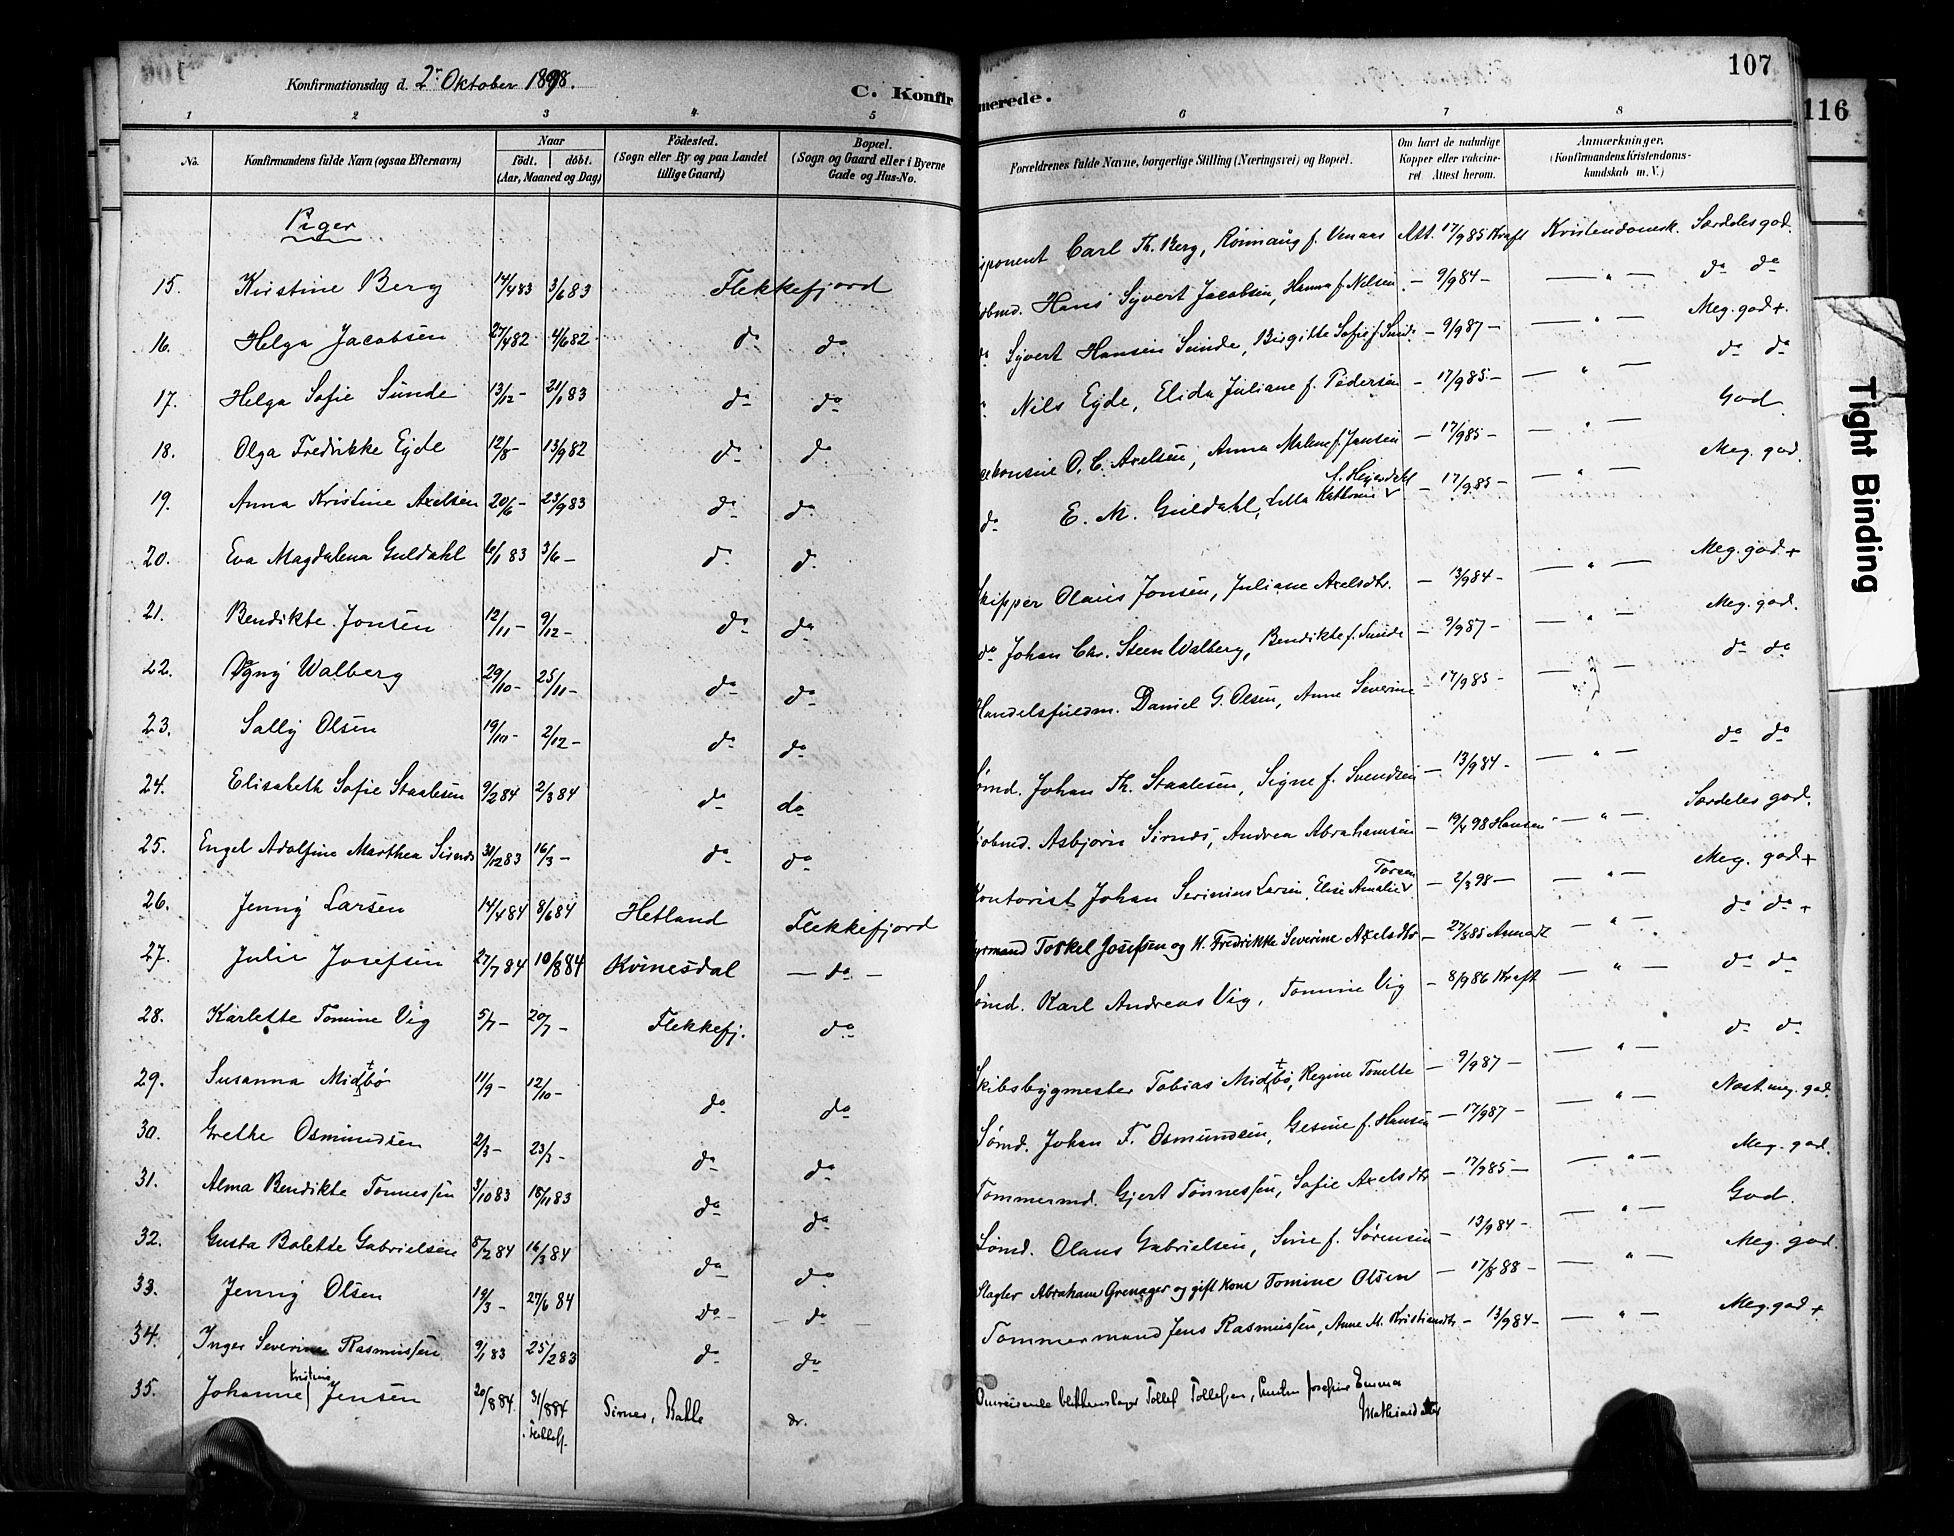 107
116
Tight Binding
Konfirmationsdag d. 2' Oktober 1898.
C. Konfir merede.
1 2 3 4 5 6 7 8
No. Konfirmandens fulde Navn (ogsaa Efternavn) Naar født. døbt. (Aar, Maaned og Dag) Fødested. (Sogn eller By og paa Landet tillige Gaard) Bopæl. (Sogn og Gaard eller i Byerne Gade og Hus-No. Forældrenes fulde Navne, borgerlige Stilling (Næringsvei) og Bopæl. Om havt de naturlige Kopper eller vakcineret. Attest herom. Anmærkninger. (Konfirmandens Kristendomskundskab m. V.)
Piger
15. Kirstine Berg 14/4 83 3/6 83 Flekkefjord Carl Th. Berg, Rönnaug f. Venaas Att. 17/9 85 Kraft Kristendomsk. Særdeles god.
16. Helga Jacobsen 27/4 82 4/6 82 do do Hans Syvert Jacobsen, Hanna f. Nilsen - 9/9 84 - — " — do do
17. Helga Sofie Sunde 13/12 - 21/1 83 do do do Syvert Hansen Sunde, Birgitte Sofie f. Sunde - 9/9 87 - — " — Meg. god +.
18. Olga Fredrikke Eyde 12/8 - 13/9 82 do do Nils Eyde, Elida Juliane f. Pedersen - 17/9 85 - — " — do do
19. Anna Kristine Axelsen 20/6 - 23/9 83 do do O. C. Axelsen, Anna Malene f. Jansen - 17/9 85 - — " — God.
20. Eva Magdalena Guldahl 6/1 83 3/6 - do do do E. M. Guldahl, Lilla Kathrine f. Heyerdahl - 17/9 85 - — " — Meg. god.
21. Bendikte Jonsen 12/11 - 9/12 - do do Skipper Olaus Jonsen, Juliane Axelsdtr. - 13/9 84 - — " — Meg. god +
22. Ogny Walberg 29/10 - 25/11 - do do do Johan Chr. Steen Walberg, Bendikte f. Sunde - 9/9 87 - — " — Meg. god.
23. Sally Olsen 19/10 - 2/12 - do do Handelsfuldm. Daniel G. Olsen, Anne Severine - 17/9 85 - — " — do do
24. Elisabeth Sofie Staalesen 9/2 84 2/3 84 do do Sømd. Johan Th. Staalesen, Signe f. Svendsen - 13/9 84 - — " — do do
25. Engel Adolfine Marthea Sirnes 31/12 83 16/3 - do do Kjøbmd. Asbjørn Sirnes, Andrea Abrahamsen - 19/4 98 Hansen — " — Særdeles god.
26. Jenny Larsen 14/4 84 8/6 84 Hetland Flekkefjord Kontorist Johan Serinius Larsen, Elise Amalie Torsen - 2/3 98 - — " — Meg. god +
27. Julie Josefsen 27/7 84 10/8 84 Kvinesdal — do — Torkel Josefsen og H. Fredrikke Severine Axelsdtr - 27/8 85 — " — do do +
28. Karlette Tomine Vig 5/7 - 20/7 - Flekkefj. do Sømd. Karl Andreas Vig, Tomine Vig - 8/9 86 Kraft — " — do do
29. Susanna Midtbø 11/9 - 12/10 - do do Skibsbygmester Tobias Midtbø, Regine Tonette - 9/9 87 - — " — do do
30. Grethe Osmundsen 2/3 - 23/3 - do do Sømd. Johan F. Osmundsen, Gesine f. Hansen - 17/9 87 - — " — Næst. meg. god.
31. Alma Bendikte Tønnessen 3/10 83 18/11 83 do do Tømmermd. Gjert Tønnessen, Sofie Axelsdtr - 17/9 85 - — " — Meg. god.
32. Gusta Bolette Gabrielsen 8/2 84 16/3 84 do do Sømd. Olaus Gabrielsen, Sine f. Sørensen - 13/9 84 - — " — God.
33. Jenny Olsen 19/3 - 27/6 84 do - — do — Slagter Abraham Grenager og gift Kone Tomine Olsen - 17/8 88 - — " — Meg. god.
34. Inger Severine Rasmussen 9/1 83 25/2 83 do do Tømmermand Jens Rasmussen, Anne M. Kristiandtr - 13/9 84 - — " — Meg. god +
35. Johanne Kristine Jensen 20/8 84. 31/8 84 Sirnes, Bakke do. Omreisende blikkenslager Tollef Tollefsen, Josefine Emma